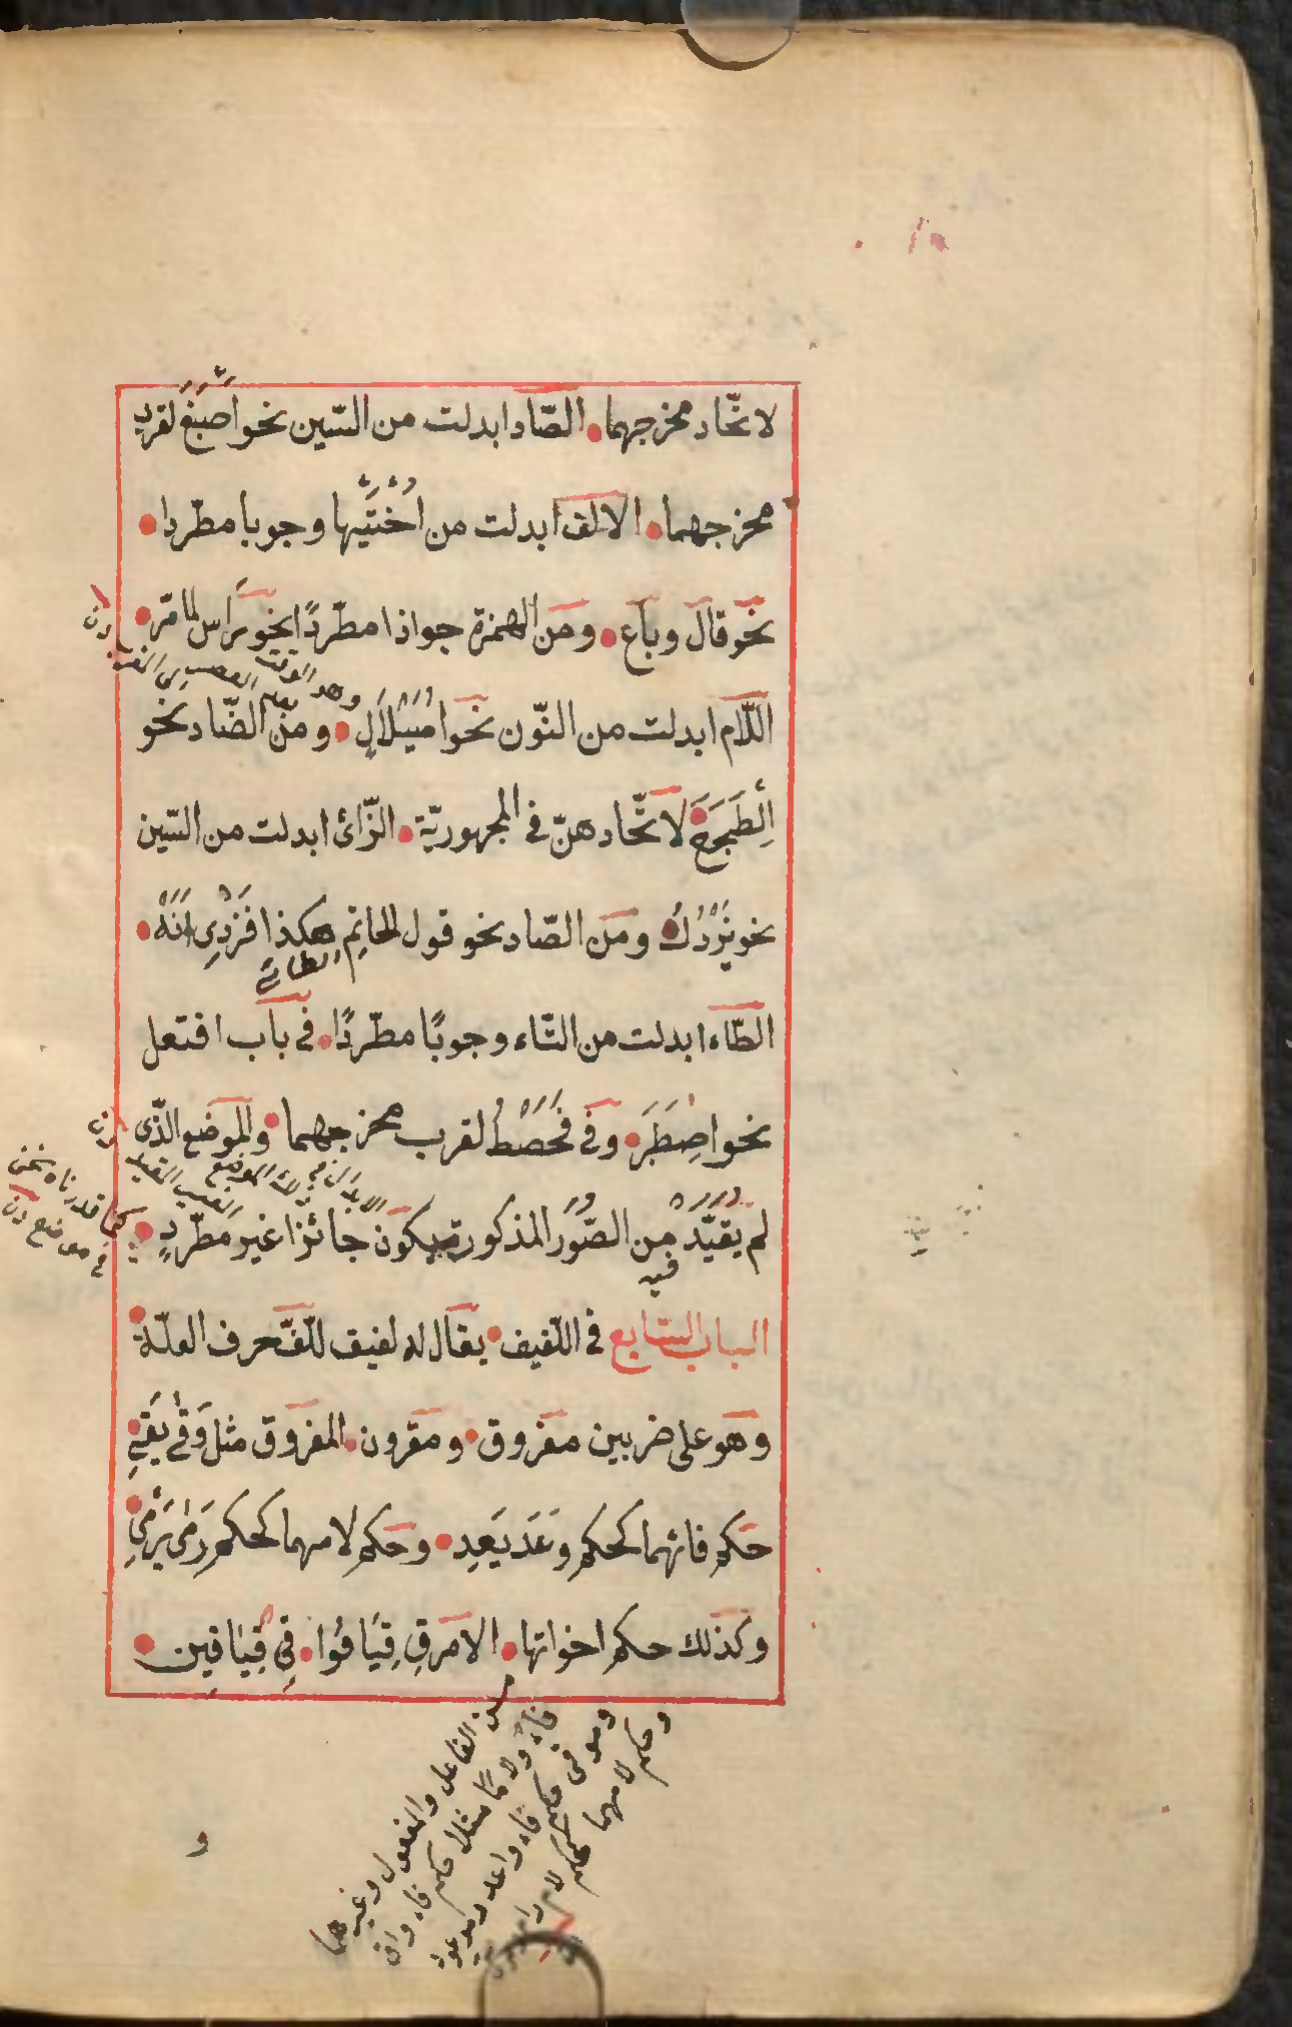 لاتّحاد مخرجهما الصّاد ابدلت من السّين نحو اصبغ لقرب
مخرجهما الالف ابدلت من اختيها وجوبا مطّردا
نحو قال وباع ومن الهمزة جوازا مطّردًا نحو راس لما مرّ
اللّام ابدلت من النّون نحو اصيلال ومن الضّاد نحو
اِلْطَجَعَ لاتّحادهنّ فى المجهوريّة الزّاى ابدلت من السّين
نحو يَزْدُلُ ومن الصّاد نحو قول الحاتم هكذا فَزْدِى اَنَهْ
الطائى
الطّاء ابدلت من التّاء وجوبًا مطّردًا فى باب افتعل
نحو اصِطَبَرَ وفى فَحَصْطُ لقرب مخرجهما والموضع الّذى
لم يقيّد من الصّور المذكورة يكون جائزا غير مطّردٍ
فيه
الباب السابع فى اللّفيف يقال له لفيف للّفّ حرف العلّة
وهو على ضربين مفروق ومقرون المفروق مثل وَقٰى يَقِى
حكم فائهما كحكم وَعَدَ يَعِد وحكم لامهما كحكم رَمٰى يَرْمِى
وكذلك حكم اخواتها الامر قِ قِيَا قُوا قِى قِيَا قِين
من الفاعل والمفعول وغيرهما
وحكم لامهما كحكم لام